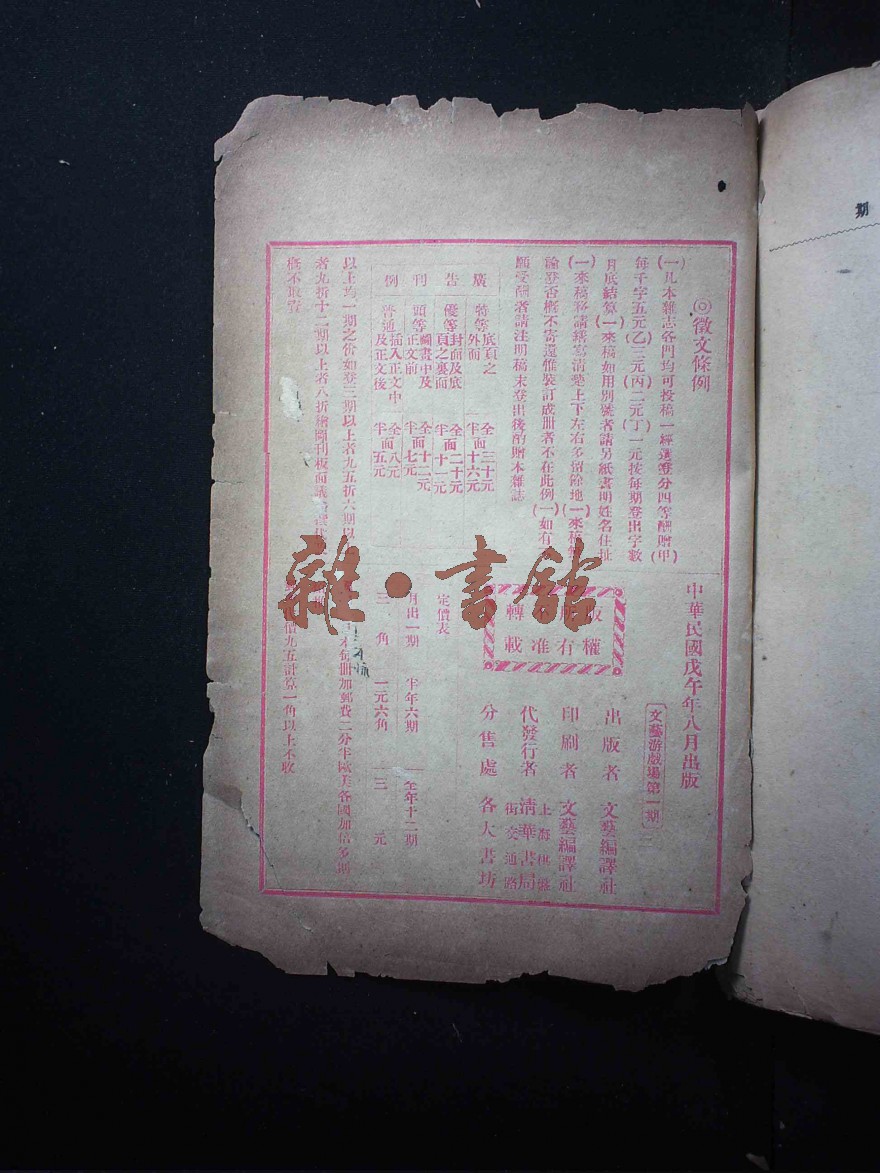 期
◎徵文條例
(一)凡本雜志各門均可投稿一經選登分四等酬贈(甲)
每千字五元(乙)三元(丙)二元(丁)一元按每期登出字數
月底結算(一)來稿如用別號者請另紙書明姓名住址
(一)來稿務請繕寫清楚上下左右多留餘地(一)來稿無
論登否概不寄還惟裝訂成冊者不在此例(一)如有
願受酬者請注明稿末登出後酌贈本雜誌
廣告刊例
特等 底頁之外面 全面三十元 半面十六元
優等 封面及底頁之裏面 全面二十元 半面十一元
頭等 圖畫中及正文前 全面十二元 半面七元
普通 插入正文中及正文後 全面八元 半面五元
以上均一期之價如登三期以上者九五折六期以
者九折十二期以上者八折繪圖刊板面議
概不取資
中華民國戊午年八月出版
文藝游戲場第一期
出版者 文藝編譯社
印刷者 文藝編譯社
代發行者 上海棋盤街交通路 清華書局
分售處 各大書坊
版權所有
不准轉載
定價表
月出一期 半年六期 全年十二期
三角 一元六角 三元
本每冊加郵費二分半歐美各國加倍多期
價九五計算一角以上不收
雜·書館